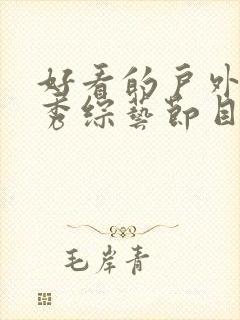 好看的户外
秀综艺节目
毛岸青